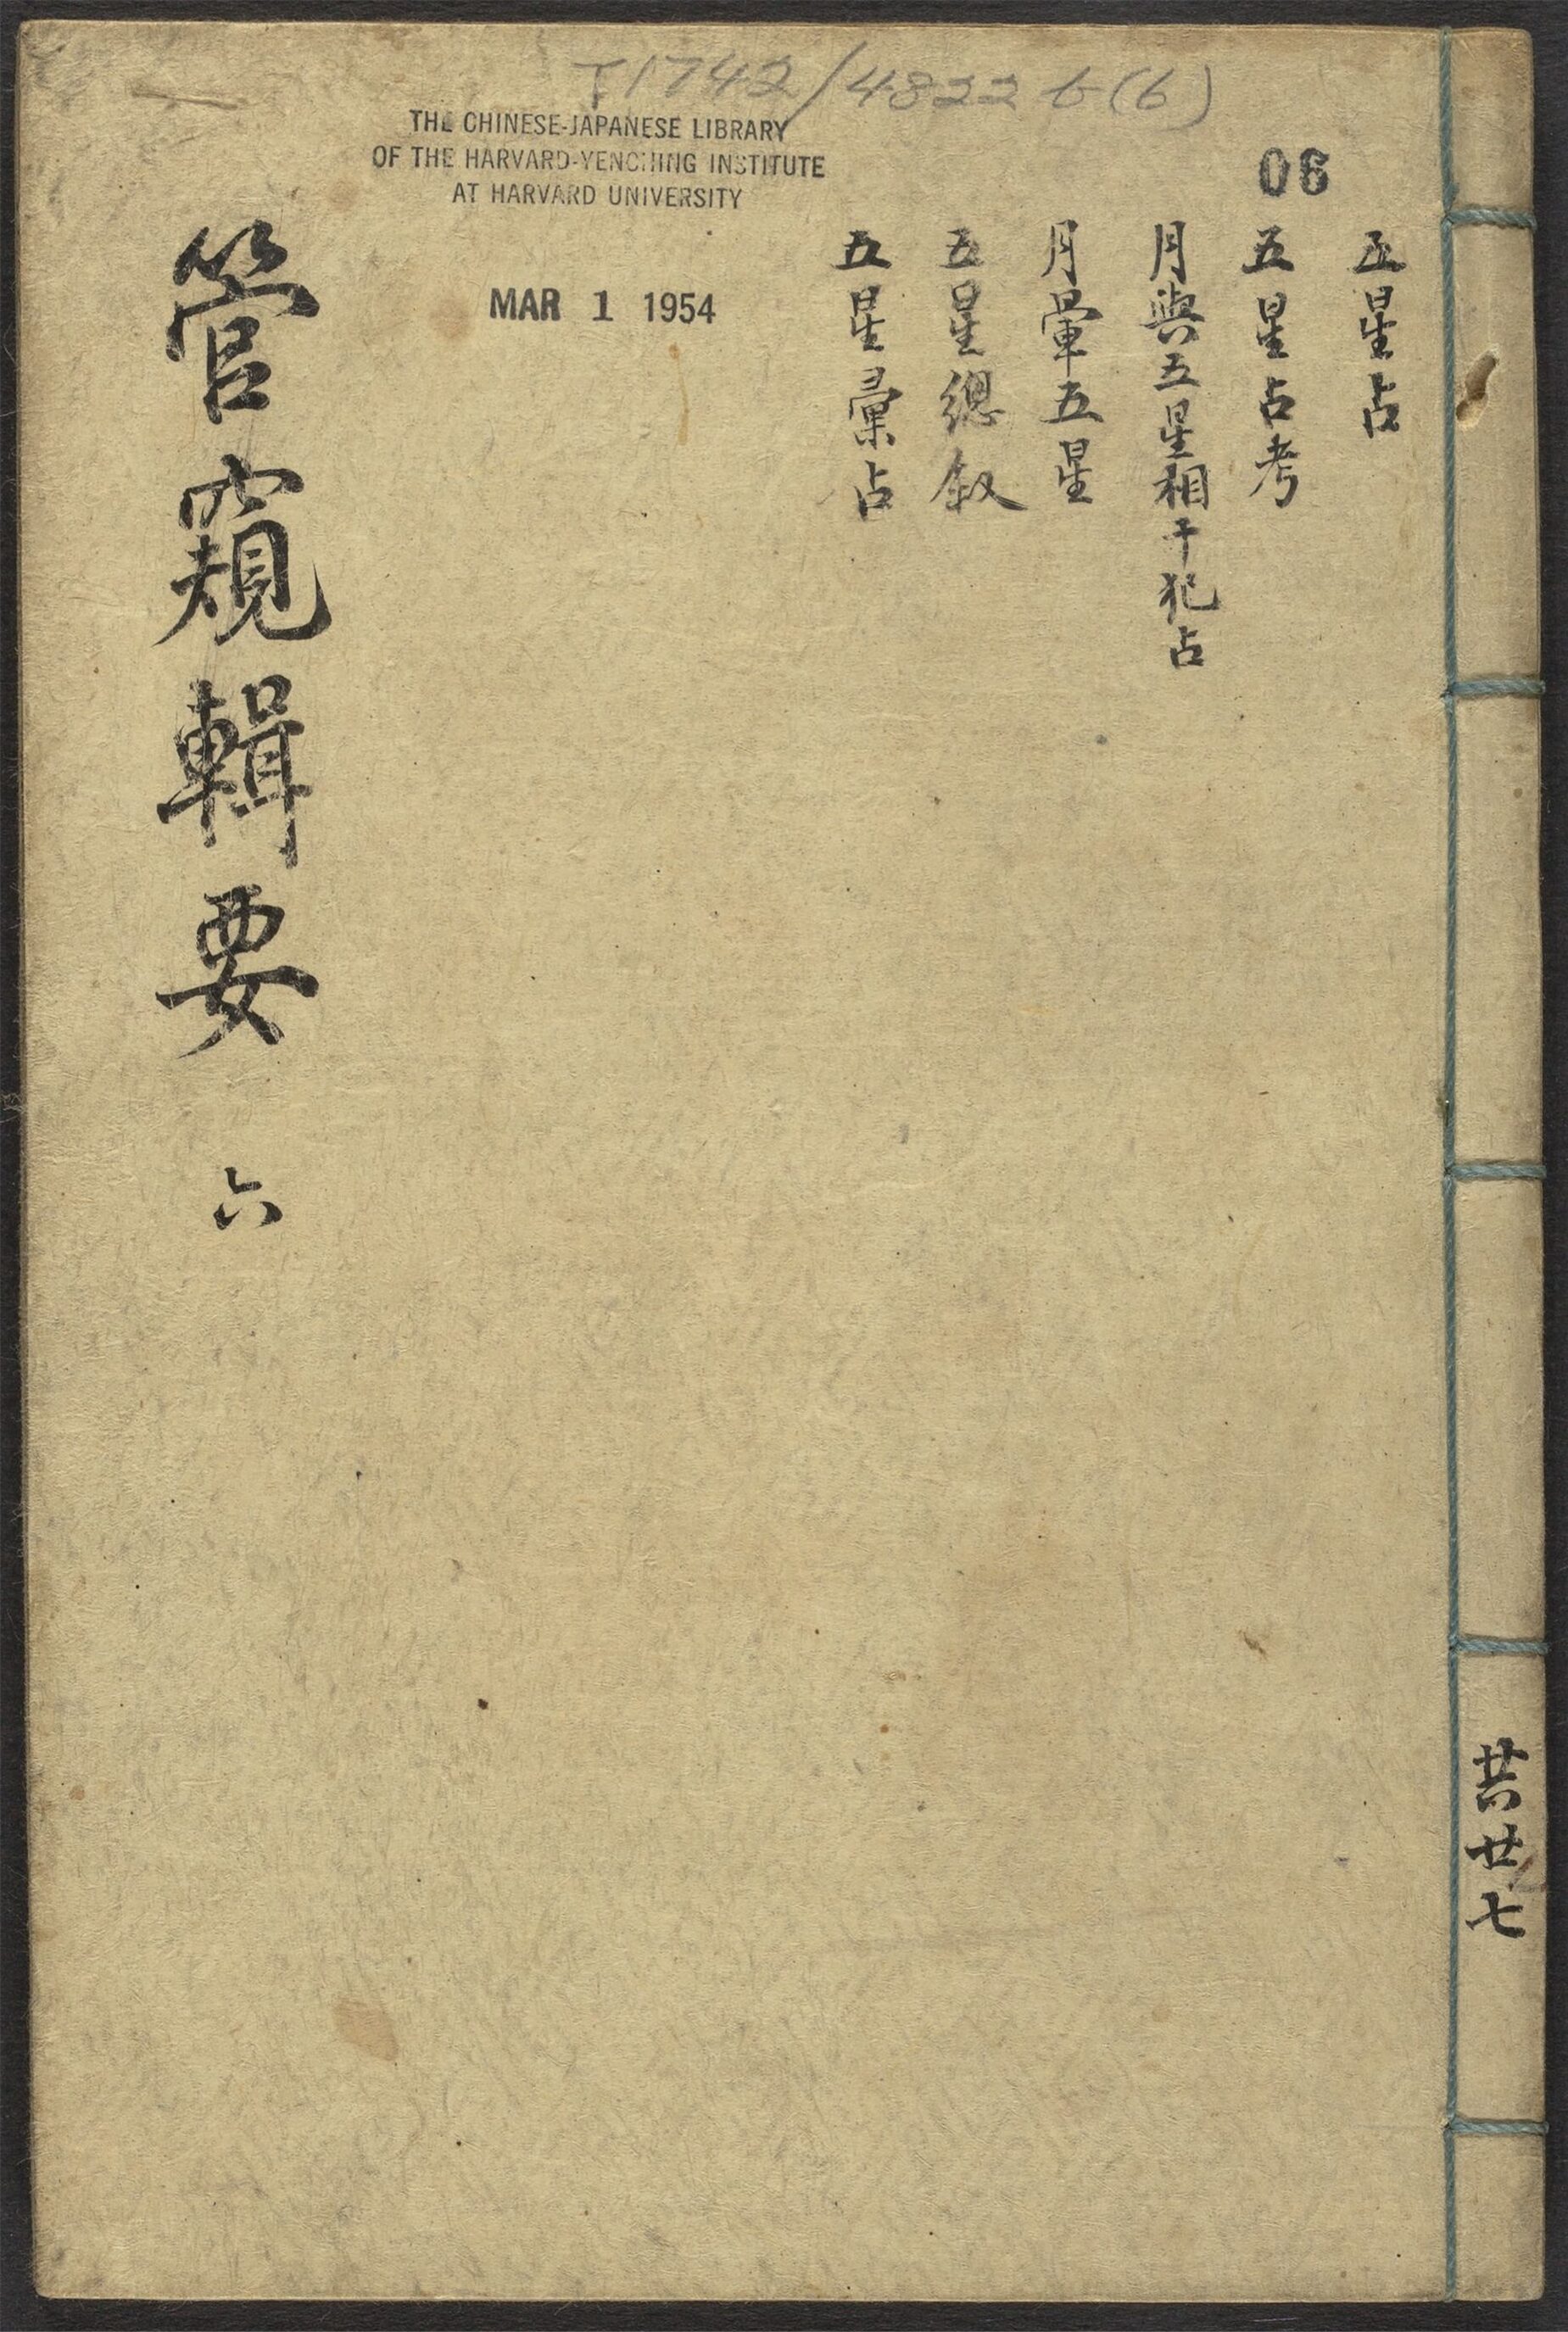 T1742/4822 b(6)
THE CHINESE-JAPANESE LIBRARY
OF THE HARVARD-YENCHING INSTITUTE
AT HARVARD UNIVERSITY
06
MAR 1 1954
五星占
五星占考
月與五星相干犯占
月暈五星
五星總叙
五星彙占
管窺輯要
六
共廿七